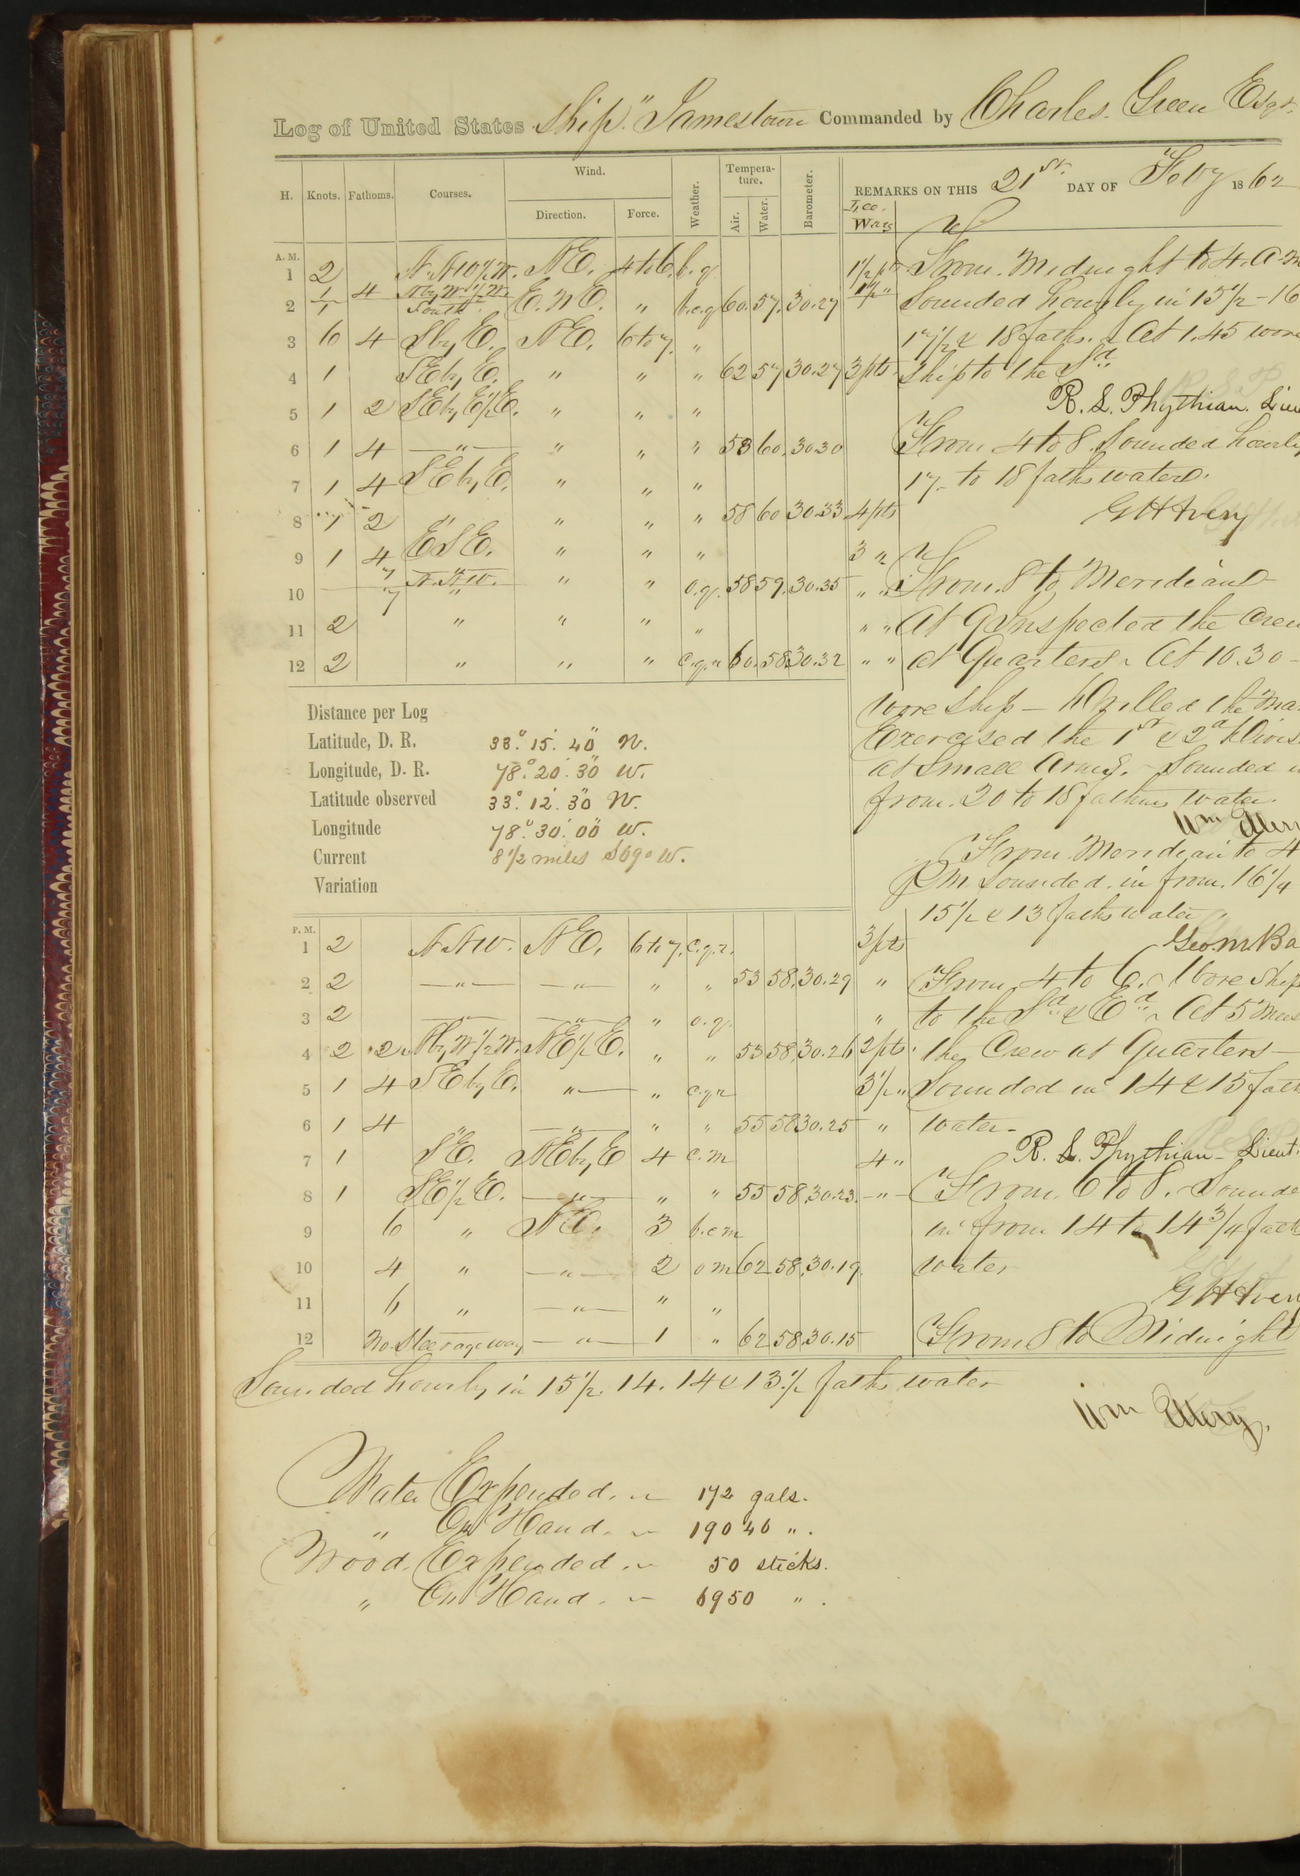 Log of United States Ship "Jamestown" Commanded by Charles Green Esqr.
H. Knots. Fathoms. Courses. Wind. Direction. Force. Weather. Temperature. Air. Water. Barometer. REMARKS ON THIS 21st DAY OF Feby 1862
Lee Way
A. M.
1 2 N.NW½W. NE. 4 to 6. b.g. 1½ pt From Midnight to 4. A.M
2 4 NbyW½W. South E.N.E. " b.c.g 60. 57. 30.27 Sounded hourly in 15½ - 16
3 6 4 SbyE. NE. 6 to 7. " 17½ & 18 faths. At 1.45 wore
4 1 SEbyE. " " " 62 57 30.27 3 pts Ship to the Sd
5 1 2 SEbyE½E. " " " R. L. Phythian. Lieu
6 1 4 " " " " 58 60. 30.30 From 4 to 8. Sounded hourly
7 1 4 SEbyE. " " " 17 to 18 faths water.
8 1 2 " " " " 58 60 30.33 4 pts G H Avery
9 1 4 ESE. " " " 3 "
10 7 N.NW. " " o.g. 58 59. 30.35 " " From 8 to Meridian
11 2 " " " " " " At 9 Inspected the Crew
12 2 " " " c.g.r 60. 58 30.32 " " at Quarters. At 10.30
wore ship - Drilled the Ma
Exercised the 1st & 2d Divis
at Small Arms. Sounded
from. 20 to 18 fathms water.
Wm Ellery
Distance per Log
Latitude, D. R. 33° 15' 40" N.
Longitude, D. R. 78° 20' 30" W.
Latitude observed 33° 12' 30" N.
Longitude 78° 30' 00" W.
Current 8½ miles S69°W.
Variation
From Meridian to 4
P.M. Sounded. in from. 16¼
15½ & 13 faths water
P. M.
1 2 N.NW. NE. 6 to 7. c.g.r. 3 pts Geo M Ba
2 2 " " " " 53 58. 30.29 " From 4 to 6. Wore Ship
3 2 " " " o.g. " to the Sd & Ed. At 5 Mus
4 2 2 NbyW½W. NE½E. " " 53 58. 30.26 2 pts the Crew at Quarters
5 1 4 SEbyE. " " c.g.r 3½ " Sounded in 14 & 15 fath
6 1 4 " " " " 55 58 30.25 " water.
7 1 SE. NEbyE 4 c.m 4 " R. L. Phythian - Lieut.
8 1 SE½E. " " " 55 58 30.23. " From 6 to 8. Sounde
9 6 " NE. 3 b.c.m in from 14 to 14¾ fath
10 4 " " 2 o m 62 58. 30.19. water
11 6 " " " " G H Avery
12 No Steerageway " 1 " 62 58. 30.15 From 8 to Midnight
Sounded hourly in 15½. 14. 14 & 13½ faths water
Wm Ellery.
Water Expended. 172 gals.
" On Hand. 19046 ".
Wood Expended. 50 sticks.
" On Hand. 6950 ".